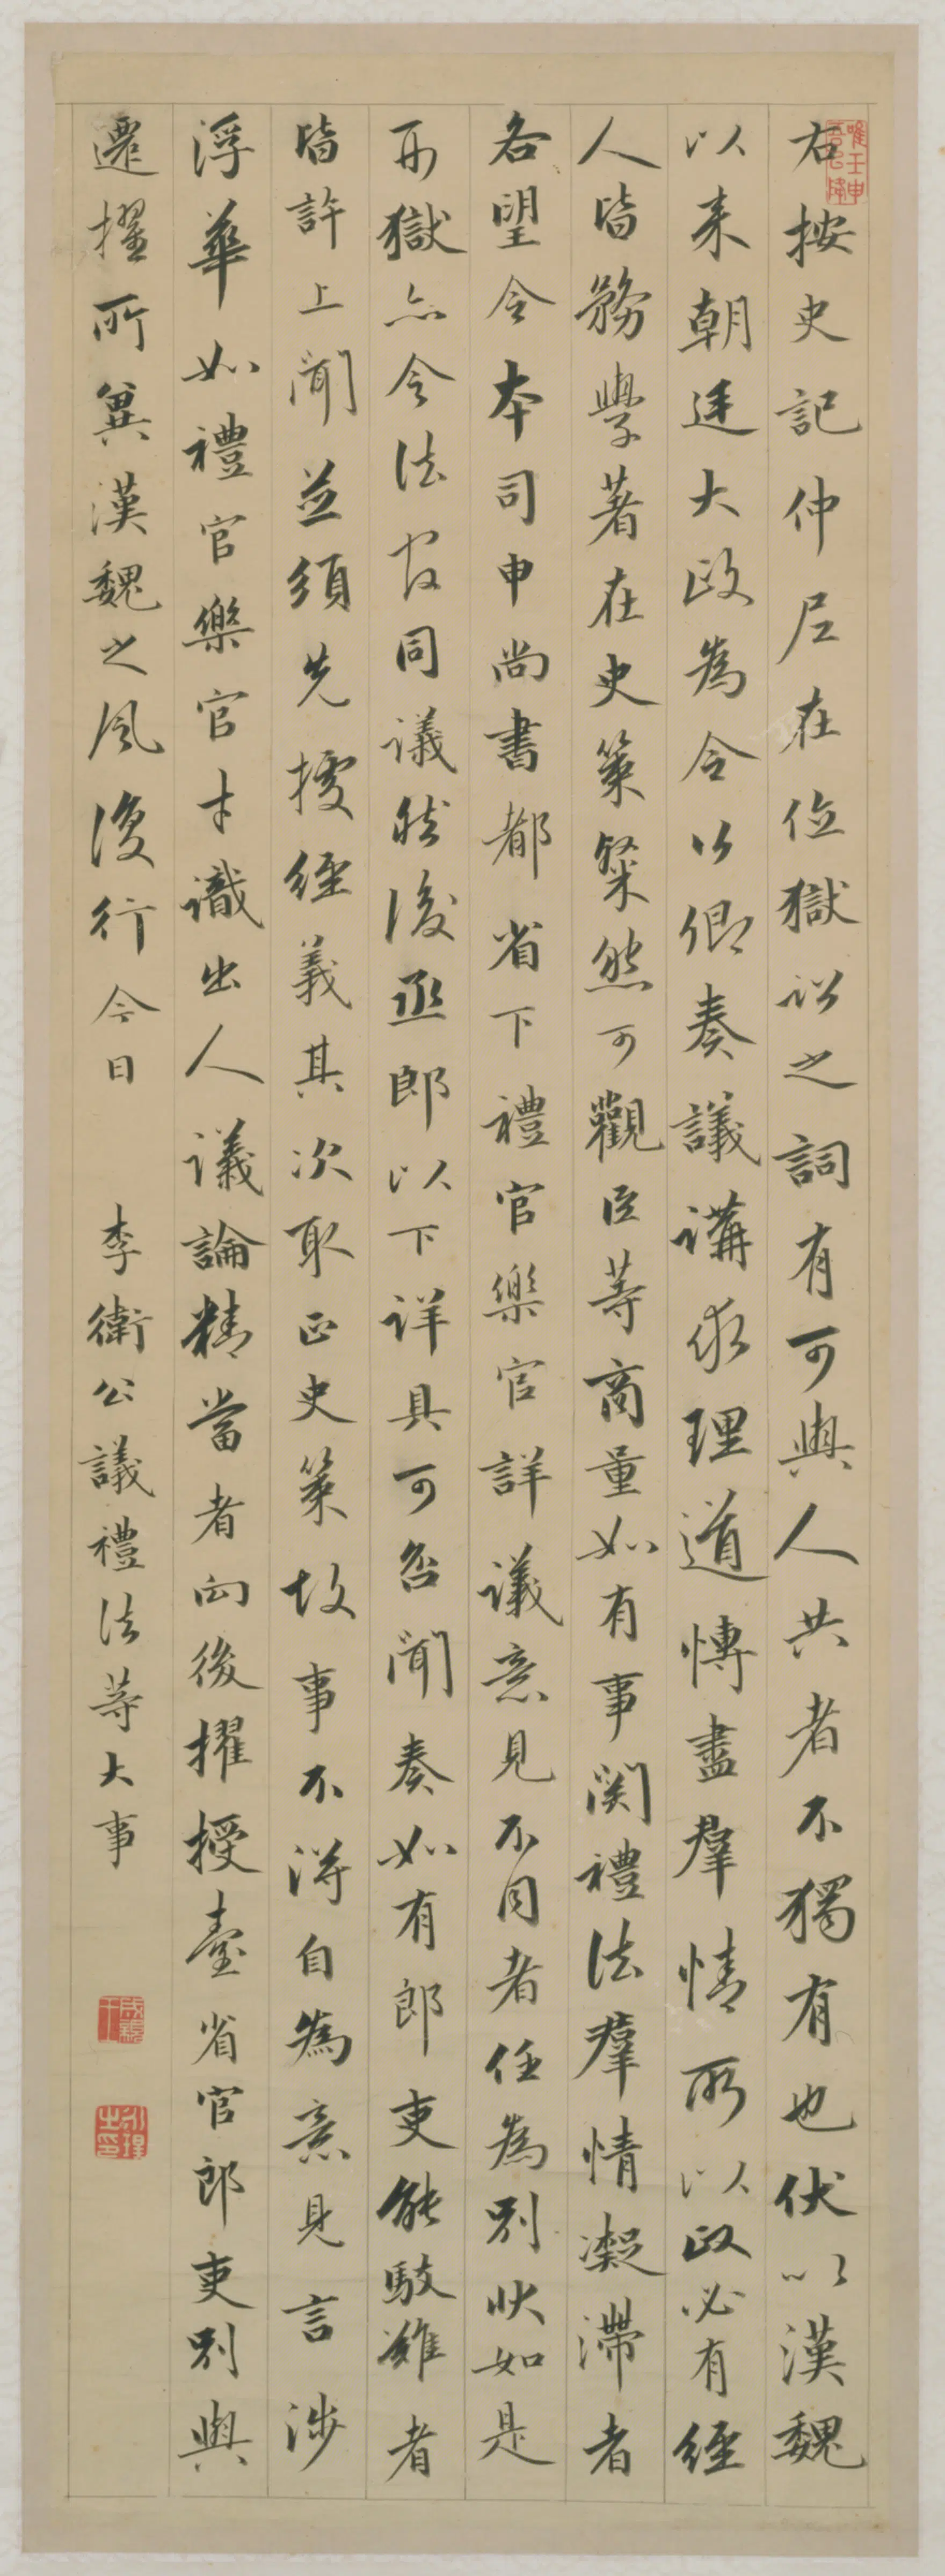 右按史記仲尼在位獄訟之詞有可與人共者不獨有也伏以漢魏
以来朝廷大政為令公卿奏議講求理道博盡羣情所以政必有經
人皆務學著在史策粲然可觀臣等商量如有事関禮法羣情凝滯者
各望令本司申尚書都省下禮官樂官詳議意見不同者任為別狀如是
刑獄亦令法官同議然後丞郎以下详具可否闻奏如有郎吏能駮難者
皆許上闻並須先據經義其次取正史策故事不得自為意見言涉
浮華如禮官樂官才識出人議論精當者向後擢授臺省官郎吏別與
遷擢所冀漢魏之風復行今日 李衛公議禮法等大事
唯壬申吾以降
成親王